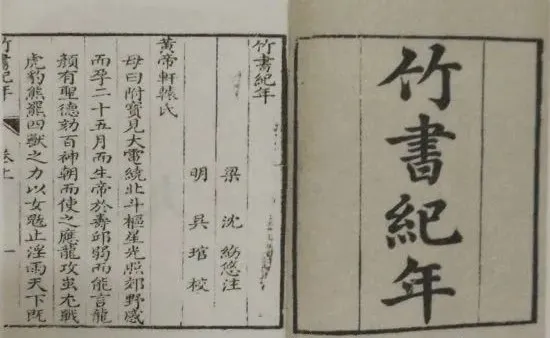 竹書紀年
竹書紀年
梁 沈約注
明 吳琯校
黃帝軒轅氏
母曰附寶見大電繞北斗樞星光照郊野感
而孕二十五月而生帝於壽邱弱而能言龍
顏有聖德劾百神朝而使之應龍攻蚩尤戰
虎豹熊羆四獸之力以女魃止淫雨天下既
竹書紀年 卷上 一